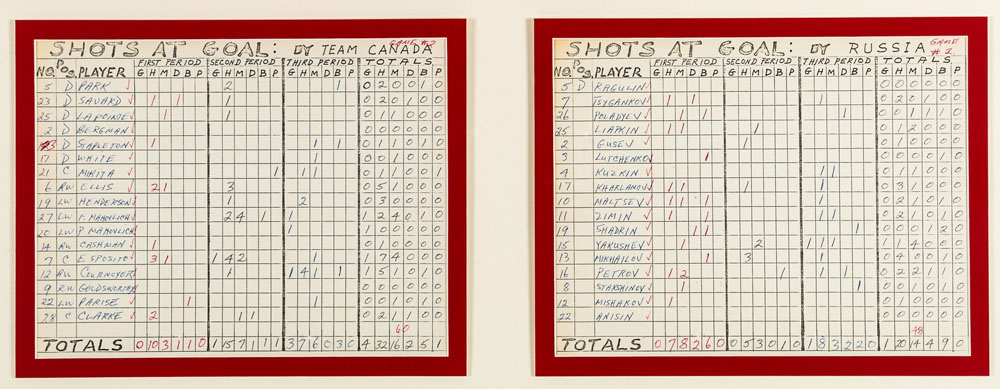 SHOTS AT GOAL: BY TEAM CANADA GAME #2
FIRST PERIOD SECOND PERIOD THIRD PERIOD TOTALS
NO. POS. PLAYER G H M D B P G H M D B P G H M D B P G H M D B P
5 D PARK 2 1 0 2 0 0 1 0
23 D SAVARD 1 1 1 0 2 0 1 0 0
25 D LAPOINTE 1 1 0 1 1 0 0 0
2 D BERGMAN 0 0 0 0 0 0
D STAPLETON 1 1 1 0 1 1 0 1 0
17 D WHITE 1 0 0 1 0 0 0
21 C MIKITA 1 1 1 0 1 1 0 0 1
6 RW ELLIS 2 1 3 0 5 1 0 0 0
19 LW HENDERSON 1 2 0 3 0 0 0 0
27 LW F. MAHOVLICH 2 4 1 1 1 2 4 0 1 0
20 LW P. MAHOVLICH 1 1 0 0 0 0 0
14 RW CASHMAN 1 0 1 0 0 0 0
7 C ESPOSITO 3 1 1 4 2 1 1 7 4 0 0 0
12 RW COURNOYER 1 1 4 1 1 1 5 1 0 1 0
9 RW GOLDSWORTHY 0 0 0 0 0 0
22 LW PARISE 1 1 0 0 1 0 1 0
28 C CLARKE 2 1 1 0 2 1 1 0 0
60
TOTALS 0 10 3 1 1 0 1 15 7 1 1 1 3 7 6 0 3 0 4 32 16 2 5 1
SHOTS AT GOAL: BY RUSSIA GAME # 2
FIRST PERIOD SECOND PERIOD THIRD PERIOD TOTALS
NO. POS. PLAYER G H M D B P G H M D B P G H M D B P G H M D B P
5 D RAGULIN 0 0 0 0 0 0
7 TSYGANKOV 1 1 1 0 2 0 1 0 0
26 POLADYEV 1 1 1 0 0 1 1 1 0
25 LIAPKIN 1 1 1 0 1 2 0 0 0
2 GUSEV 1 1 0 1 1 0 0 0
3 LUTCHENKO 1 0 0 0 0 1 0
4 KUZKIN 1 1 0 1 1 0 0 0
17 KHARLAMOV 1 1 1 1 0 3 1 0 0 0
10 MALTSEV 1 1 1 1 0 2 1 0 1 0
11 ZIMIN 1 1 1 1 0 2 1 0 1 0
19 SHADRIN 1 1 1 0 0 0 1 2 0
15 YAKUSHEV 1 2 1 1 1 1 1 4 0 0 0
13 MIKHAILOV 1 3 1 0 4 0 0 1 0
16 PETROV 1 2 1 1 1 0 2 2 1 1 0
8 STARSHINOV 1 1 0 0 1 0 1 0
12 MISHAKOV 1 0 1 0 0 0 0
22 ANISIN 0 0 0 0 0 0
48
TOTALS 0 7 8 2 6 0 0 5 3 0 1 0 1 8 3 2 2 0 1 20 14 4 9 0